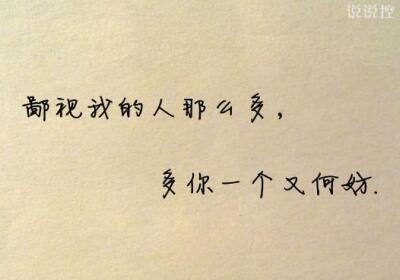 说说控
鄙视我的人那么多,
多你一个又何妨.